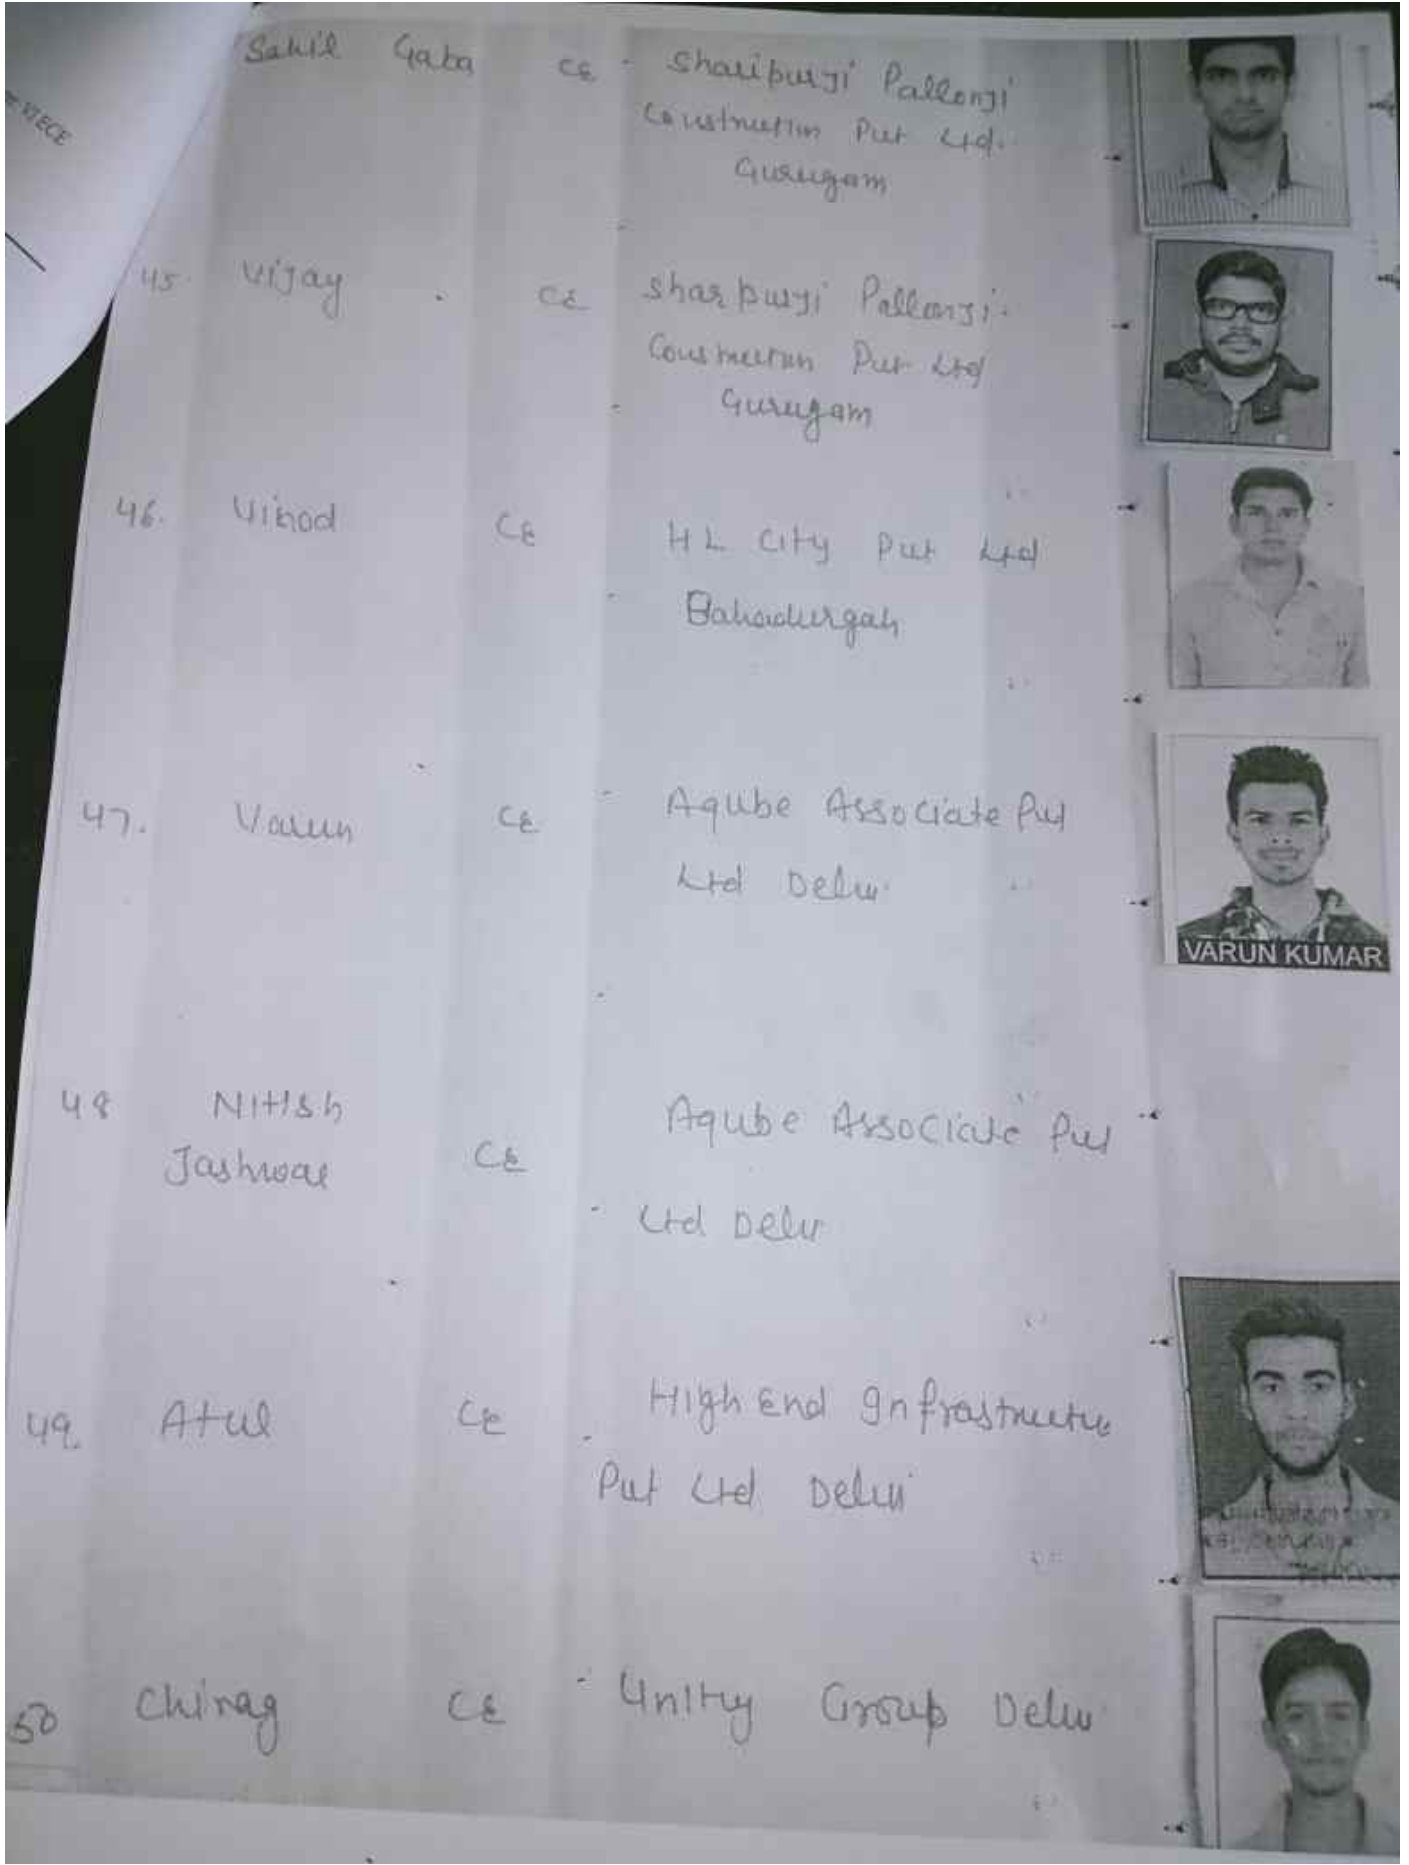 VIECE
Sahil Gaba CE Sharipurji Pallonji
Construction Pvt Ltd.
Gurugam
45. Vijay CE Sharpurji Pallonji
Construction Pvt Ltd
Gurugam
46. Vinod CE HL City Pvt Ltd
Bahadurgah
47. Varun CE Aqube Associate Pvt
Ltd Delhi
VARUN KUMAR
48 Nitish Aqube Associate Pvt
Jashwar CE
Ltd Delhi
49. Atul CE High End Infrastructure
Pvt Ltd Delhi
50 Chirag CE Unity Group Delhi